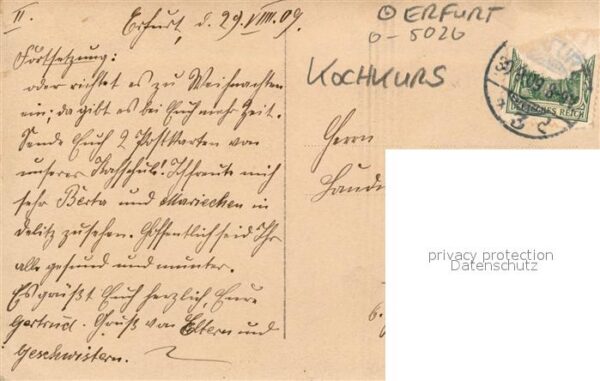 II
Erfurt, d. 29. VIII. 09.
Fortsetzung:
oder richtet es zu Weihnachten
ein; da gibt es bei Euch mehr Zeit.
Sende Euch 2 Postkarten von
unserer Kochschule! Ich freute mich
sehr Berta und Mariechen in
Delitz zu sehen. Hoffentlich seid Ihr
alle gesund und munter.
Es grüßt Euch herzlich, Eure
Gertrud. Gruß von Eltern und
Geschwistern.
ERFURT
0-5020
KOCHKURS
DEUTSCHES REICH
Herrn
privacy protection
Datenschutz